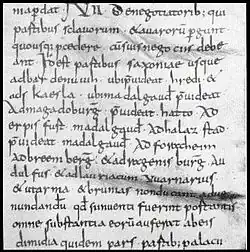 mandat VII De negotiatorib: qui
partibus sclavorum & avarorū p̄gunt
quousq; pcedere cū suis negociis debe
ant Id est partibus saxoniae usque
ad bardenuuih ubi p̄uideat hredi &
ad skaesla ubi madalgaud p̄uideat
Ad magadoburg p̄uideat hatto Ad
erpisfurt madalgaud Ad halazstad
p̄uideat madalgaud Ad foracheim
Ad breemberg & ad ragenisburg Au
dulfus & ad lauriacum uuarnarius
& ut arma & brunias non ducant ad ue
nundandū qđ si inuenti fuerint portantes
omne substantia eorū auferat ab eis
dimidia quidem pars partib; palacii